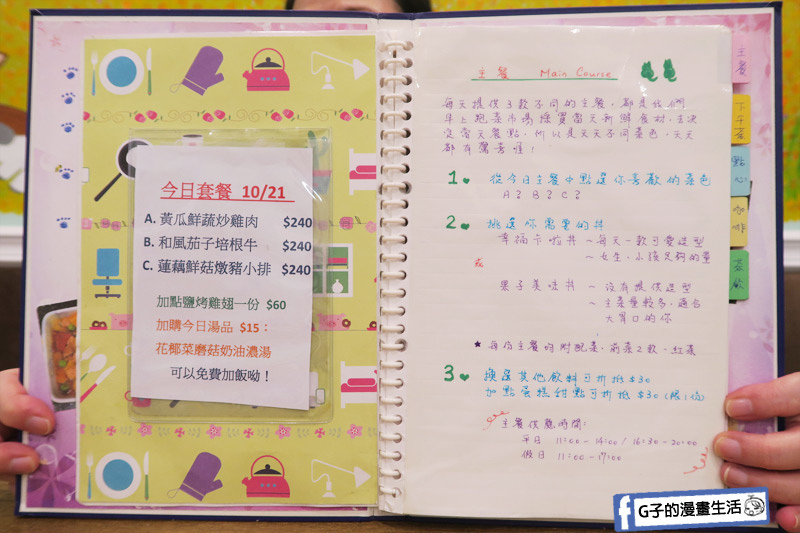 今日套餐 10/21
A. 黃瓜鮮蔬炒雞肉 $240
B. 和風茄子培根牛 $240
C. 蓮藕鮮菇燉豬小排 $240
加點鹽烤雞翅一份 $60
加購今日湯品 $15：
花椰菜磨菇奶油濃湯
可以免費加飯呦！
主餐 Main Course
每天提供3款不同的主餐，都是我們
早上跑菜市場採買當天新鮮食材，去決
定當天餐點，所以是天天不同菜色，天天
都有驚喜喔！
1 從今日主餐中點選你喜歡的菜色
A? B? C?
2 挑選你需要的丼
幸福卡啦丼～每天一款可愛造型
～女生、小孩足夠的量
或
栗子美味丼～沒有提供造型
～主菜量較多，適合
大胃口的你
★每份主餐均附配菜、前菜2款、紅茶
3 換選其他飲料可折抵$30
加點蛋糕甜點可折抵$30（限1份）
主餐供應時間：
平日 11:00-14:00/16:30-20:00
假日 11:00-19:00
主餐
下午茶
點心
咖啡
茶飲
G子的漫畫生活